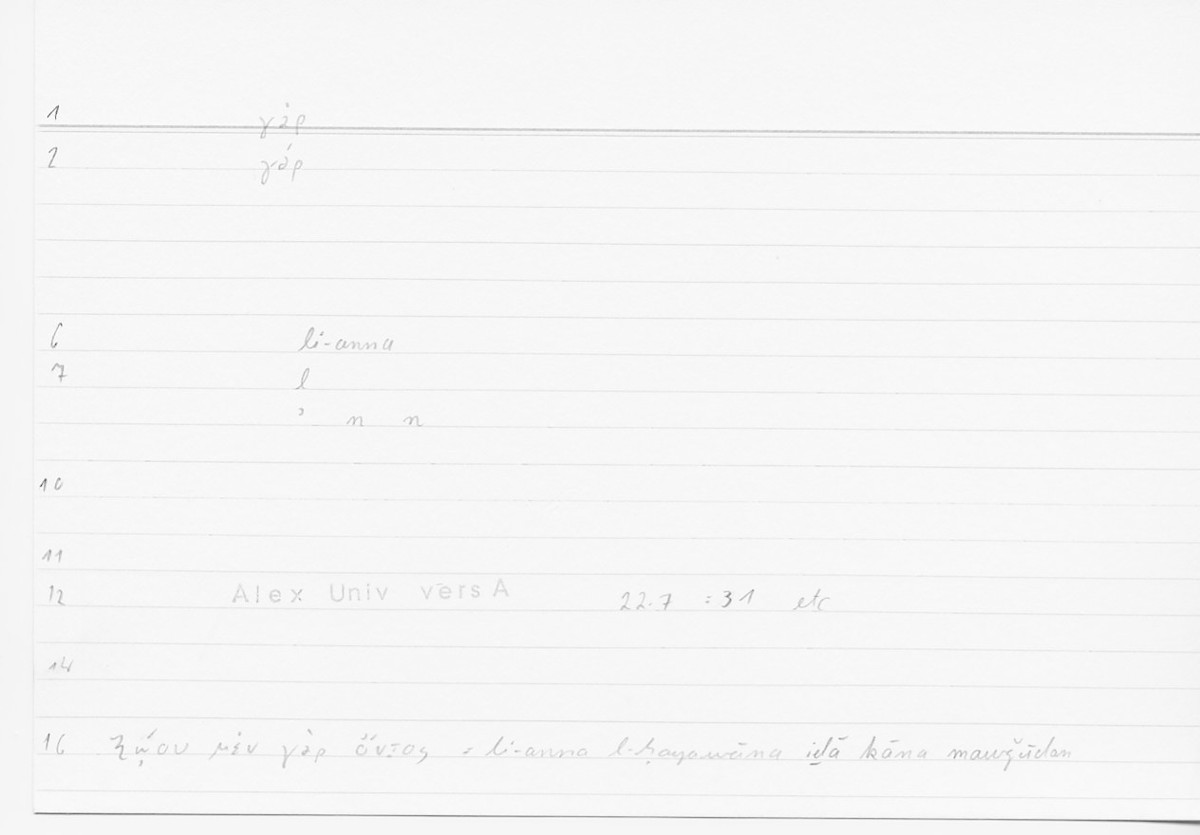 1 γὰρ
2 γάρ
6 li-anna
7 l
ʾ n n
10
11
12 Alex Univ vērs A 22.7 :31 etc
14
16 ζῴου μὲν γὰρ ὄντος = li-anna l-ḥayawāna iḏā kāna mawǧūdan